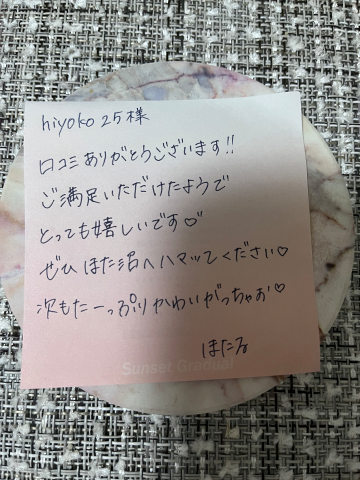 hiyoko 25様
口コミありがとうございます!!
ご満足いただけたようで
とっても嬉しいです♡
ぜひ ほた沼へハマッてください♡
次もたーっぷりかわいがっちゃお♡
ほたる
Sunset Gradual